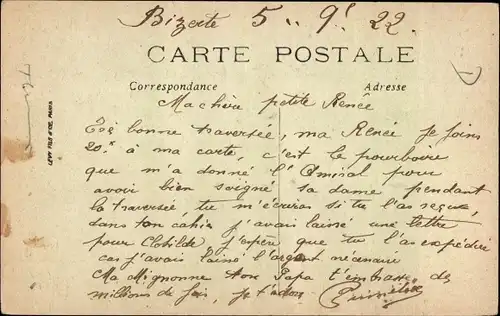 Bizerte 5 .. 9! 22.
CARTE POSTALE
Correspondance Adresse
LEVY FILS & CIE, PARIS
Ma chère petite Renée
bonne traversée, ma Renée je joins
20.f à ma carte, c'est le pourboire
que m'a donné l'Amiral pour
avoir bien soigné sa dame pendant
la traversée, tu m'écriras si tu l'as reçue,
dans ton cahier j'avais laissé une lettre
pour Clotilde j'espère que tu l'as expédiée
car j'avais laissé l'argent nécessaire
Ma Mignonne ton Papa t'embrasse des
millions de fois, je t'adore